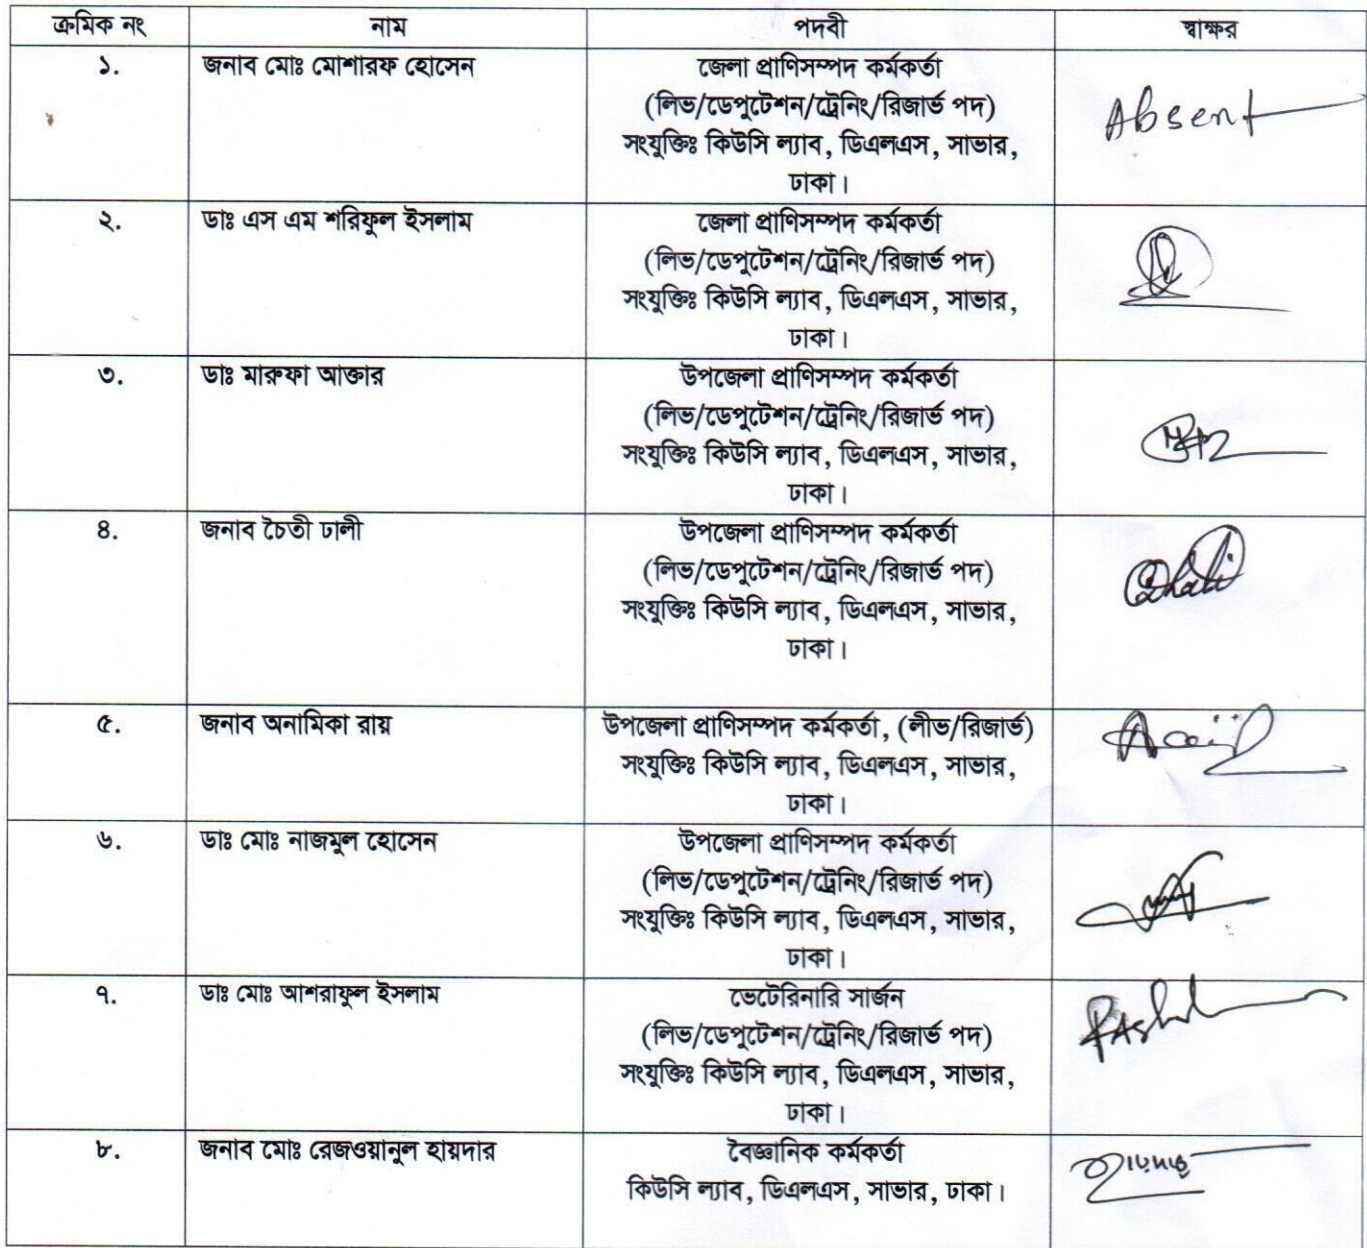 ক্রমিক নং নাম পদবী স্বাক্ষর
১. জনাব মোঃ মোশারফ হোসেন জেলা প্রাণিসম্পদ কর্মকর্তা
(লিভ/ডেপুটেশন/ট্রেনিং/রিজার্ভ পদ) Absent
সংযুক্তিঃ কিউসি ল্যাব, ডিএলএস, সাভার,
ঢাকা।
২. ডাঃ এস এম শরিফুল ইসলাম জেলা প্রাণিসম্পদ কর্মকর্তা
(লিভ/ডেপুটেশন/ট্রেনিং/রিজার্ভ পদ)
সংযুক্তিঃ কিউসি ল্যাব, ডিএলএস, সাভার,
ঢাকা।
৩. ডাঃ মারুফা আক্তার উপজেলা প্রাণিসম্পদ কর্মকর্তা
(লিভ/ডেপুটেশন/ট্রেনিং/রিজার্ভ পদ)
সংযুক্তিঃ কিউসি ল্যাব, ডিএলএস, সাভার,
ঢাকা।
৪. জনাব চৈতী ঢালী উপজেলা প্রাণিসম্পদ কর্মকর্তা
(লিভ/ডেপুটেশন/ট্রেনিং/রিজার্ভ পদ)
সংযুক্তিঃ কিউসি ল্যাব, ডিএলএস, সাভার,
ঢাকা।
৫. জনাব অনামিকা রায় উপজেলা প্রাণিসম্পদ কর্মকর্তা, (লীভ/রিজার্ভ)
সংযুক্তিঃ কিউসি ল্যাব, ডিএলএস, সাভার,
ঢাকা।
৬. ডাঃ মোঃ নাজমুল হোসেন উপজেলা প্রাণিসম্পদ কর্মকর্তা
(লিভ/ডেপুটেশন/ট্রেনিং/রিজার্ভ পদ)
সংযুক্তিঃ কিউসি ল্যাব, ডিএলএস, সাভার,
ঢাকা।
৭. ডাঃ মোঃ আশরাফুল ইসলাম ভেটেরিনারি সার্জন
(লিভ/ডেপুটেশন/ট্রেনিং/রিজার্ভ পদ)
সংযুক্তিঃ কিউসি ল্যাব, ডিএলএস, সাভার,
ঢাকা।
৮. জনাব মোঃ রেজওয়ানুল হায়দার বৈজ্ঞানিক কর্মকর্তা
কিউসি ল্যাব, ডিএলএস, সাভার, ঢাকা।